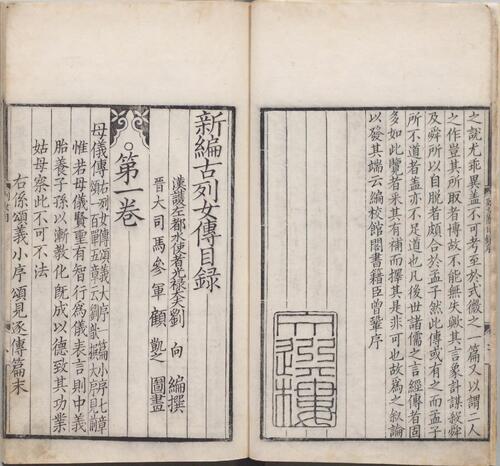 之說尤乖異蓋不可考至於式微之一篇又以謂二人
之作豈其所取者博故不能無失歟其言象計謀殺舜
及舜所以自脫者頗合於孟子然此傳或有之而孟子
所不道者蓋亦不足道也凡後世諸儒之言經傳者固
多如此覽者采其有補而擇其是非可也故為之叙論
以發其端云編校館閣書籍臣曾鞏序
文選樓
新編古列女傳目錄
漢護左都水使者光祿大夫劉 向 編撰
晉大司馬參軍顧凱之圖畫
第一卷
母儀傳
古列女傳頌義大序一篇小序七章
頌一百單五章云劉歆撰大序目前
惟若母儀賢聖有智行為儀表言則中義
胎養子孫以漸教化既成以德致其功業
姑母察此不可不法
右係頌義小序頌見逐傳篇末